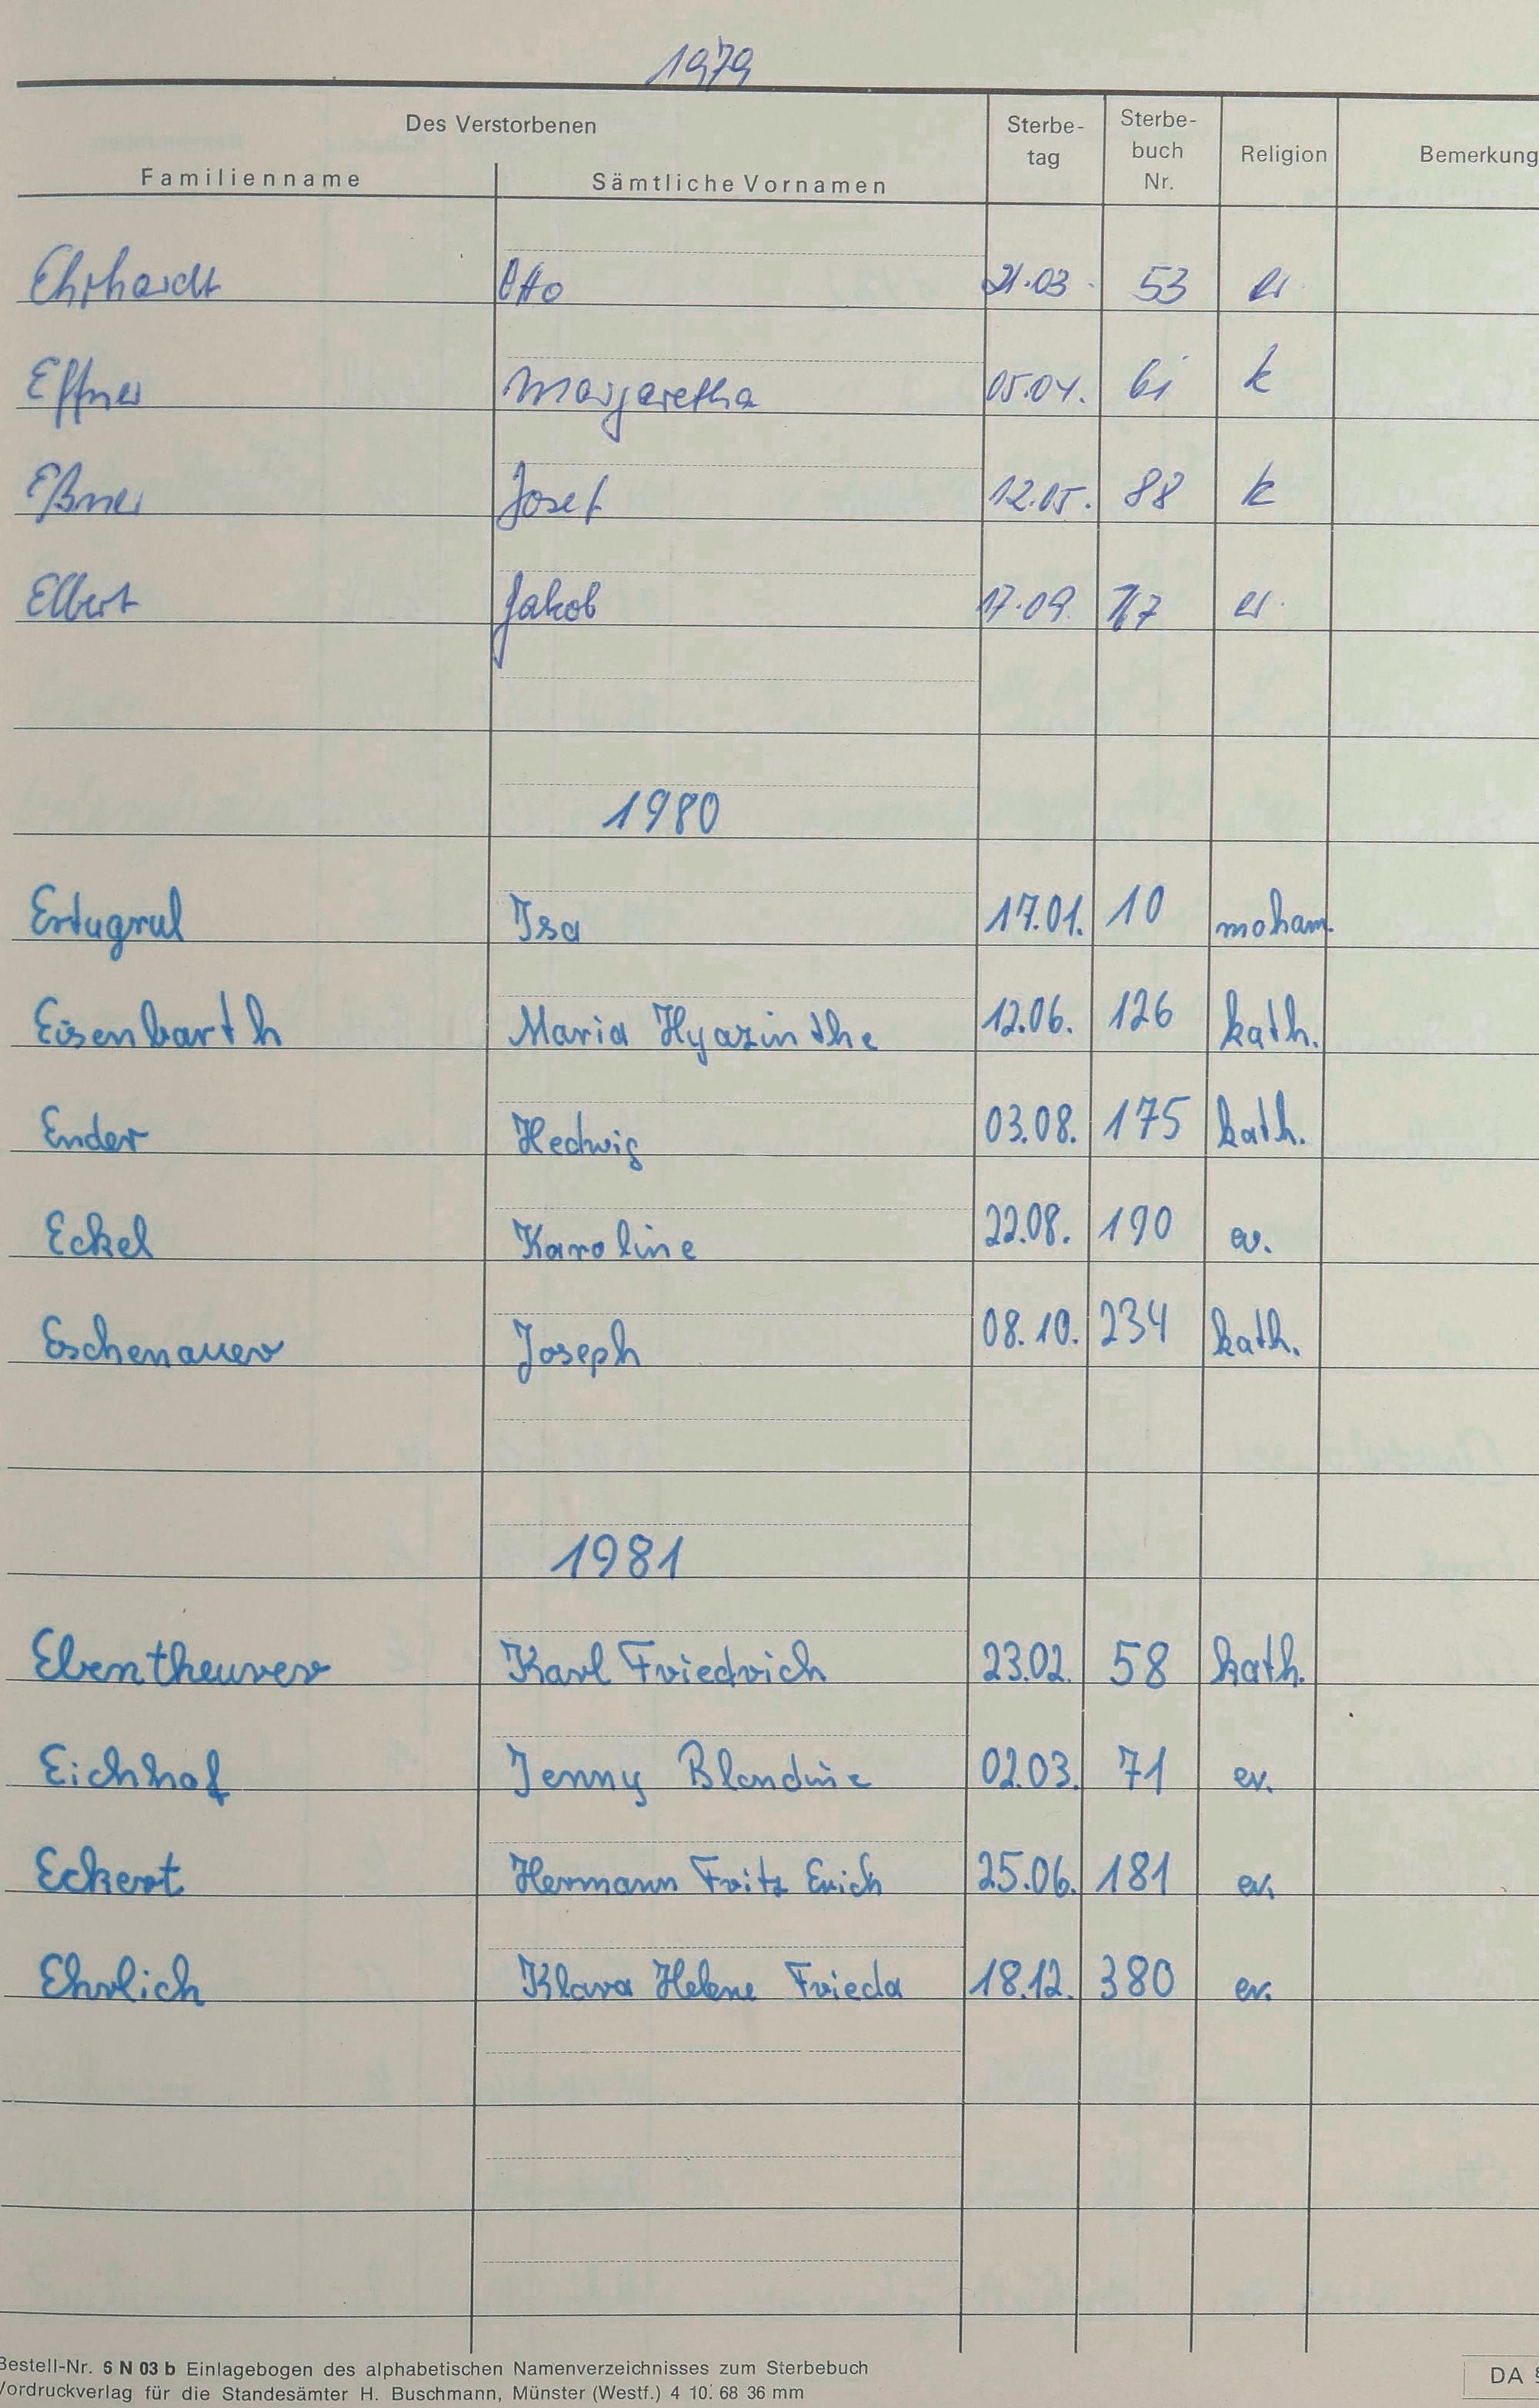 1979
Des Verstorbenen
Familienname Sämtliche Vornamen Sterbe- tag Sterbe- buch Nr. Religion Bemerkung
Ehrhardt Otto 21.03. 53 ev.
Effner Margaretha 05.04. 61 k
Eßner Josef 12.05. 88 k
Elbert Jakob 17.09. ev.
1980
Ertugrul Isa 17.01. 10 moham.
Eisenbarth Maria Hyazinthe 12.06. 126 kath.
Ender Hedwig 03.08. 175 kath.
Eckel Karoline 22.08. 190 ev.
Eschenauer Joseph 08.10. 234 kath.
1981
Ebentheurer Karl Friedrich 23.02. 58 kath.
Eichhof Jenny Blandine 02.03. 71 ev.
Eckert Hermann Fritz Erich 25.06. 181 ev.
Ehrlich Klara Helene Frieda 18.12. 380 ev.
Bestell-Nr. 6 N 03 b Einlagebogen des alphabetischen Namenverzeichnisses zum Sterbebuch
Vordruckverlag für die Standesämter H. Buschmann, Münster (Westf.) 4 10. 68 36 mm
DA